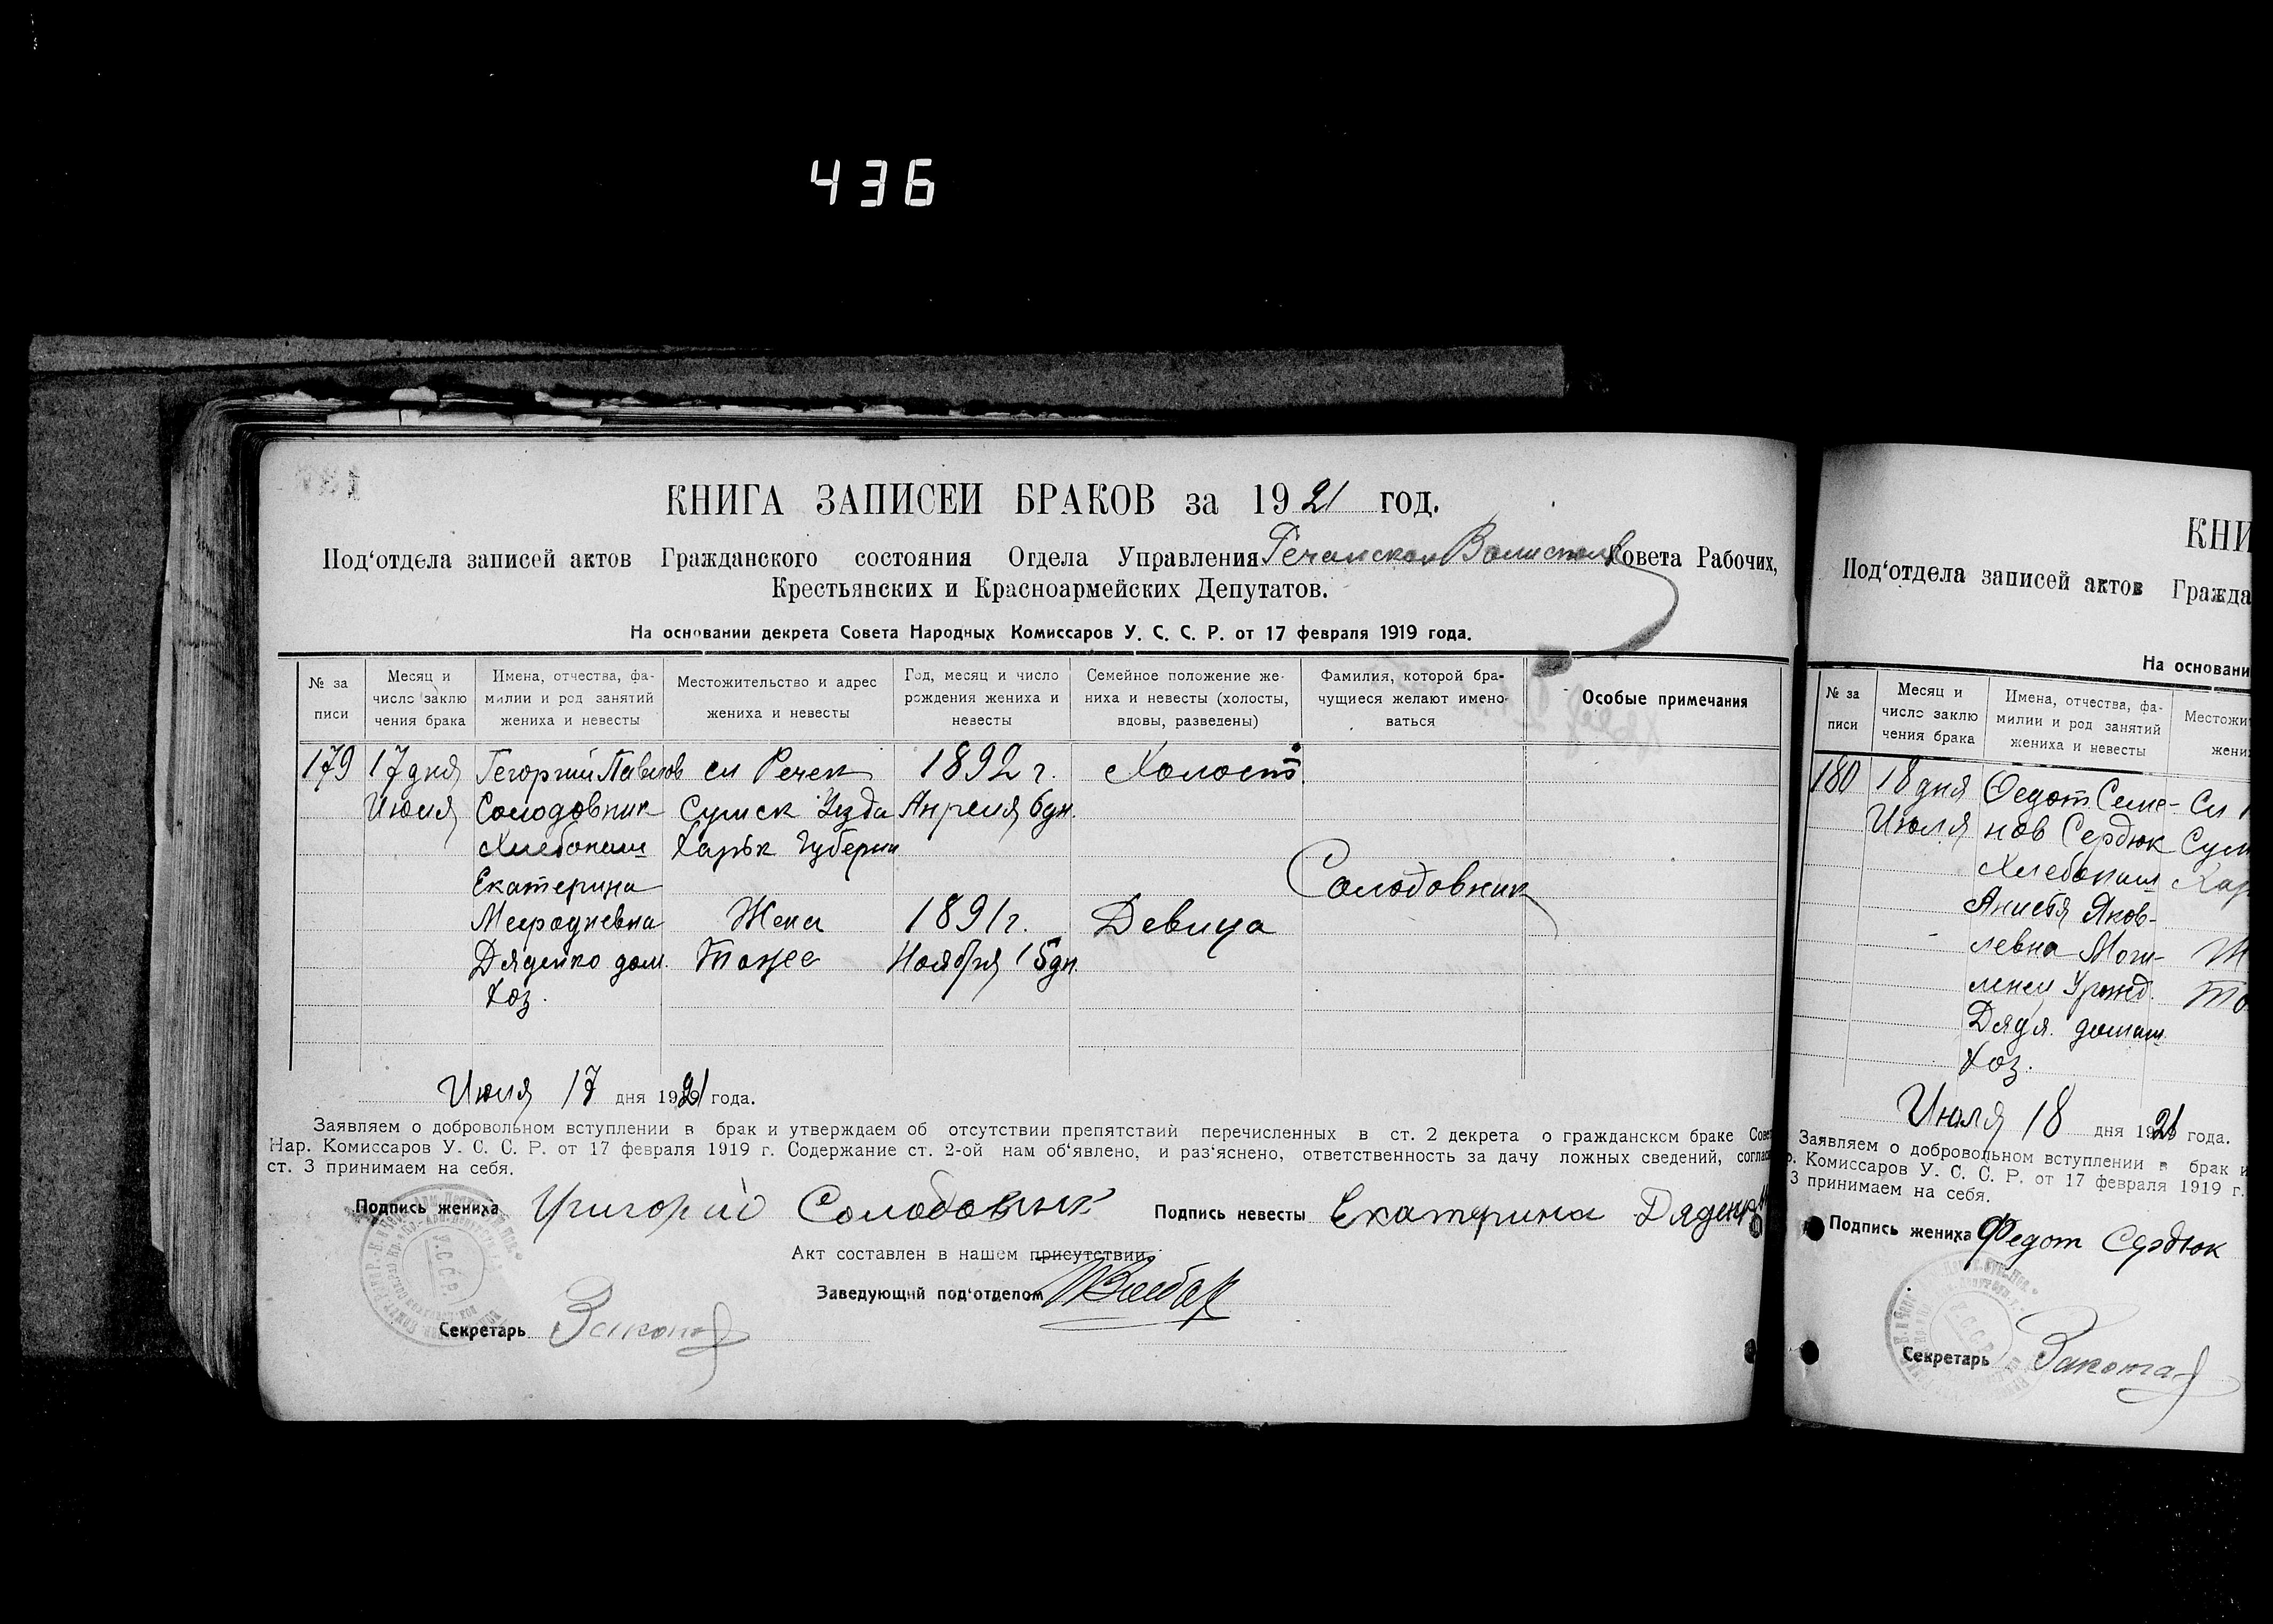 436
КНИГА ЗАПИСЕЙ БРАКОВ за 1921 год.
Под‘отдела записей актов Гражданского состояния Отдела Управления Речанской Волисполк Совета Рабочих,
Крестьянских и Красноармейских Депутатов.
На основании декрета Совета Народных Комиссаров У. С. С. Р. от 17 февраля 1919 года.
№ за писи
Месяц и число заклю чения брака
Имена, отчества, фа- милии и род занятий жениха и невесты
Местожительство и адрес жениха и невесты
Год, месяц и число рождения жениха и невесты
Семейное положение же- ниха и невесты (холосты, вдовы, разведены)
Фамилия, которой бра- чущиеся желают имено- ваться
Особые примечания
179 17 дня Георгий Павлов сл Речек 1892 г. Холост
Июля Солодовник Сумск Уезда Апреля 6 дн.
Хлебопаш Харьк Губернии
Екатерина Солодовник
Жена 1891 г. Девица
Дяденко дом. Тоже Ноября 15 дн.
Хоз.
Июля 17 дня 1921 года.
Заявляем о добровольном вступлении в брак и утверждаем об отсутствии препятствий перечисленных в ст. 2 декрета о гражданском браке Сове
Нар. Комиссаров У. С. С. Р. от 17 февраля 1919 г. Содержание ст. 2-ой нам об‘явлено, и раз‘яснено, ответственность за дачу ложных сведений, соглас
ст. 3 принимаем на себя.
Подпись жениха Григорий Солодовник Подпись невесты Екатерина Дяденк
Акт составлен в нашем присутствии
Заведующий под‘отделом
Секретарь
У.С.С.Р.
КНИ
Под‘отдела записей актов Гражда
На основани
№ за писи
Месяц и число заклю чения брака
Имена, отчества, фа- милии и род занятий жениха и невесты
Местожи жени
180 18 дня Федот Семе- Сл
Июля нов Сердюк Сум
Хлебопаш Хар
Яков-
левна Моги-
Урожд.
Дядя. домаш
Хоз.
Июля 18 дня 1921 года.
Заявляем о добровольном вступлении в брак и
р. Комиссаров У. С. С. Р. от 17 февраля 1919 г.
3 принимаем на себя.
Подпись жениха Федот Сердюк
Секретарь